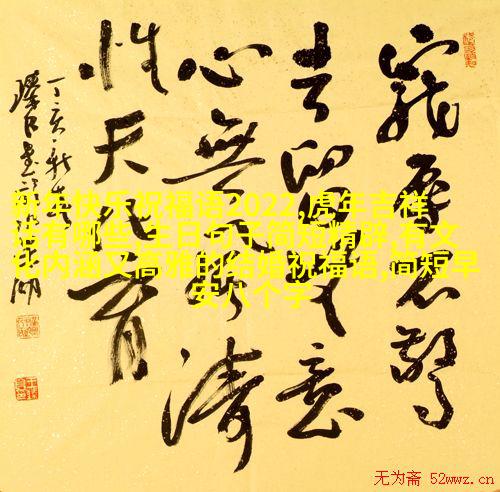 寵辱不驚
去留無意
心無風濤
性天化育
新年快乐祝福语2022,虎年吉祥
话有哪些,生日句子简短精辟,有文
化内涵又高雅的结婚祝福语,简短早
安八个字
无为斋 52wwz.cn